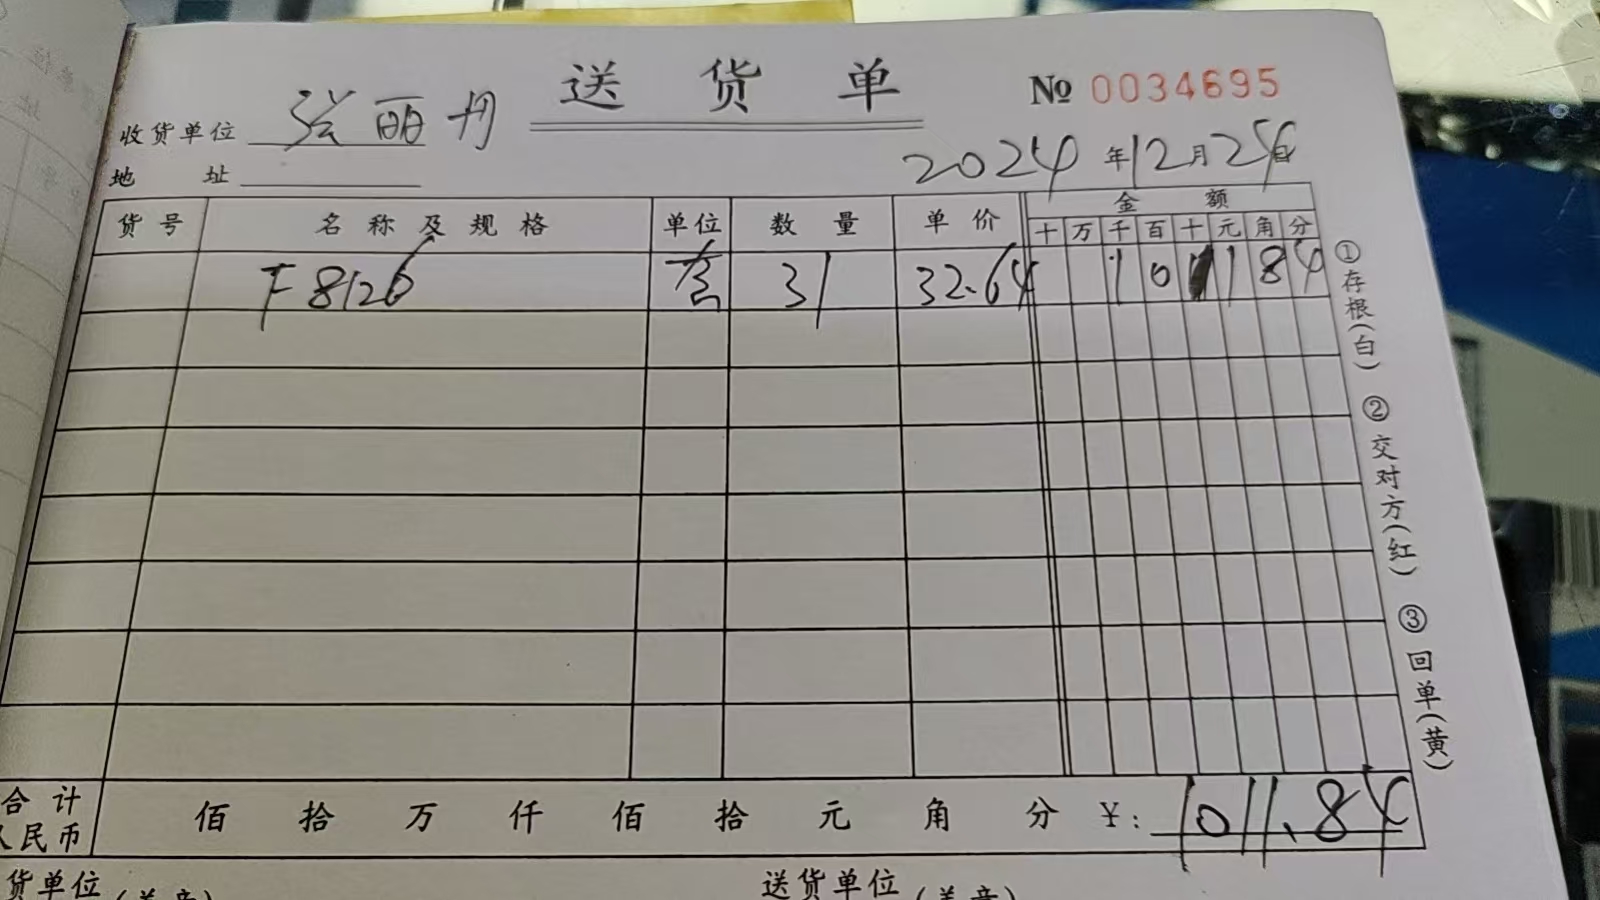 送货单 № 0034695
收货单位 张丽丹
2024年12月24日
地址
货号 名称及规格 单位 数量 单价 金额
十 万 千 百 十 元 角 分
F8126 套 31 32.64 1 0 1 1 8 4
①存根(白) ②交对方(红) ③回单(黄)
合计 佰 拾 万 仟 佰 拾 元 角 分 ¥: 1011.84
人民币
货单位(盖章) 送货单位(盖章)